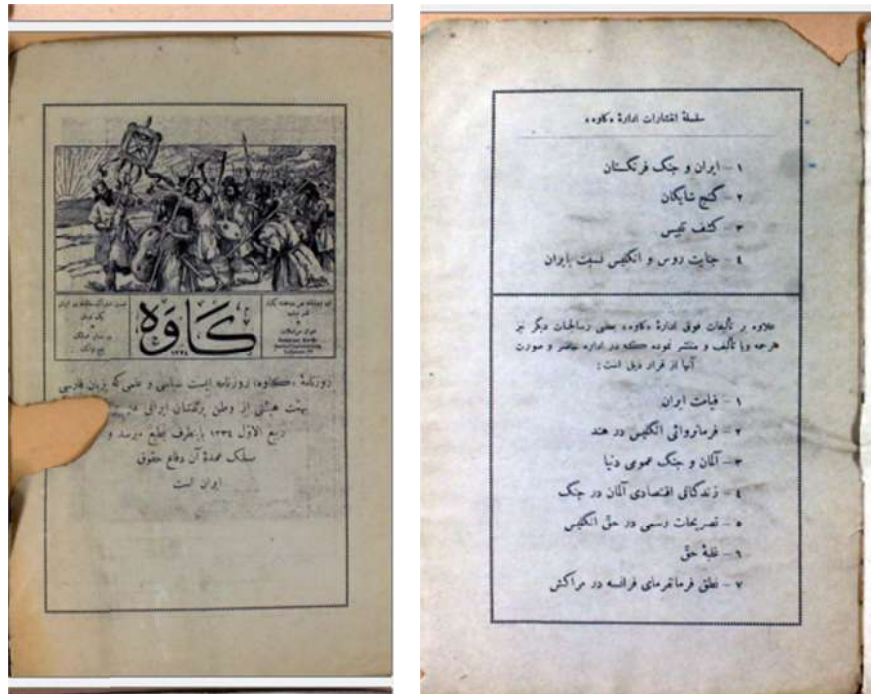 کاوه
۱۳۳٤
روزنامهٔ «کاوه» روزنامه ایست سیاسی و علمی که بزبان فارسی
بهمّت هیئتی از وطن پرستان ایرانی در
ربیع الاوّل ۱۳۳٤ باینطرف بطبع میرسد و
مسلک عمدهٔ آن دفاع حقوق
ایران است
سلسلهٔ انتشارات ادارهٔ «کاوه»
۱ – ایران و جنگ فرنگستان
۲ – گنج شایگان
۳ – کشف تلبیس
٤ – جنایت روس و انگلیس نسبت بایران
علاوه بر تألیفات فوق ادارهٔ «کاوه» بعضی رسالجات دیگر نیز
ترجمه ویا تألیف و منتشر نموده که در اداره حاضر و صورت
آنها از قرار ذیل است:
۱ – قیامت ایران
۲ – فرمانروائی انگلیس در هند
۳ – آلمان و جنگ عمومی دنیا
٤ – زندگانی اقتصادی آلمان در جنگ
٥ – تصریحات رسمی در حقّ انگلیس
٦ – غلبهٔ حقّ
۷ – نطق فرمانفرمای فرانسه در مراکش